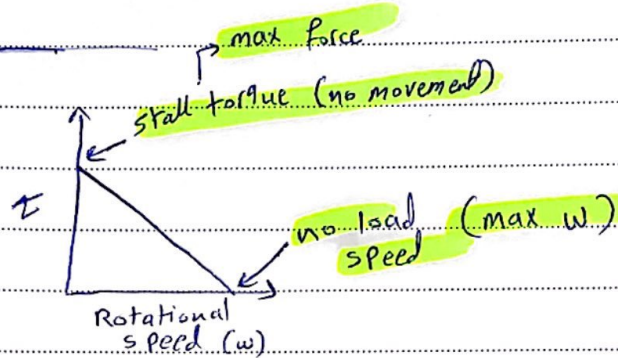 max force
stall torque (no movement)
τ
no load (max w)
speed
Rotational
speed (w)